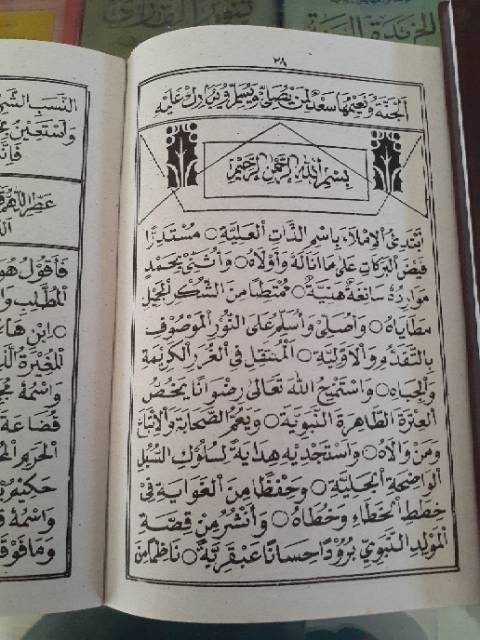 الخريدة البهية
٢٨
الْجَنَّةُ وَنَعِيمُهَا سَعْدٌ لِمَنْ يُصَلِّيْ وَيُسَلِّمُ وَيُبَارِكُ عَلَيْهِ
بِسْمِ اللهِ الرَّحْمٰنِ الرَّحِيْمِ
اَبْتَدِئُ الْاِمْلَاءَ بِاسْمِ الذَّاتِ الْعَلِيَّةِ ○ مُسْتَدِرًّا
فَيْضَ الْبَرَكَاتِ عَلٰى مَا اَنَالَهُ وَاَوْلَاهُ ○ وَاُثَنِّيْ بِحَمْدٍ
مَوَارِدُهُ سَائِغَةٌ هَنِيَّةٌ ○ مُمْتَطِيًا مِنَ الشُّكْرِ الْجَمِيْلِ
مَطَايَاهُ ○ وَاُصَلِّيْ وَاُسَلِّمُ عَلَى النُّوْرِ الْمَوْصُوْفِ
بِالتَّقَدُّمِ وَالْاَوَّلِيَّةِ ○ الْمُنْتَقِلِ فِي الْغُرَرِ الْكَرِيْمَةِ
وَالْجِبَاهِ ○ وَاَسْتَمْنِحُ اللهَ تَعَالٰى رِضْوَانًا يَخُصُّ
الْعِتْرَةَ الطَّاهِرَةَ النَّبَوِيَّةَ ○ وَيَعُمُّ الصَّحَابَةَ وَالْاَتْبَاعَ
وَمَنْ وَالَاهُ ○ وَاَسْتَجْدِيْهِ هِدَايَةً لِسُلُوْكِ السُّبُلِ
الْوَاضِحَةِ الْجَلِيَّةِ ○ وَحِفْظًا مِنَ الْغَوَايَةِ فِيْ
خِطَطِ الْخَطَاءِ وَخُطَاهُ ○ وَاَنْشُرُ مِنْ قِصَّةِ
الْمَوْلِدِ النَّبَوِيِّ بُرُوْدًا حِسَانًا عَبْقَرِيَّةً ○ نَاظِمًا مِنَ
النَّسَبِ
وَاَسْتَعِيْنُ
عَطِّرِ اللّٰهُمَّ
فَاَقُوْلُ هُوَ
الْمُطَّلِبِ
○ ابْنِ هَاشِمٍ
الْمُغِيْرَةُ
وَاسْمُهُ
قُضَاعَةَ
الْحَرِيْمِ
حَكِيْمٌ
وَاسْمُهُ
وَمَا فَوْقَهُ